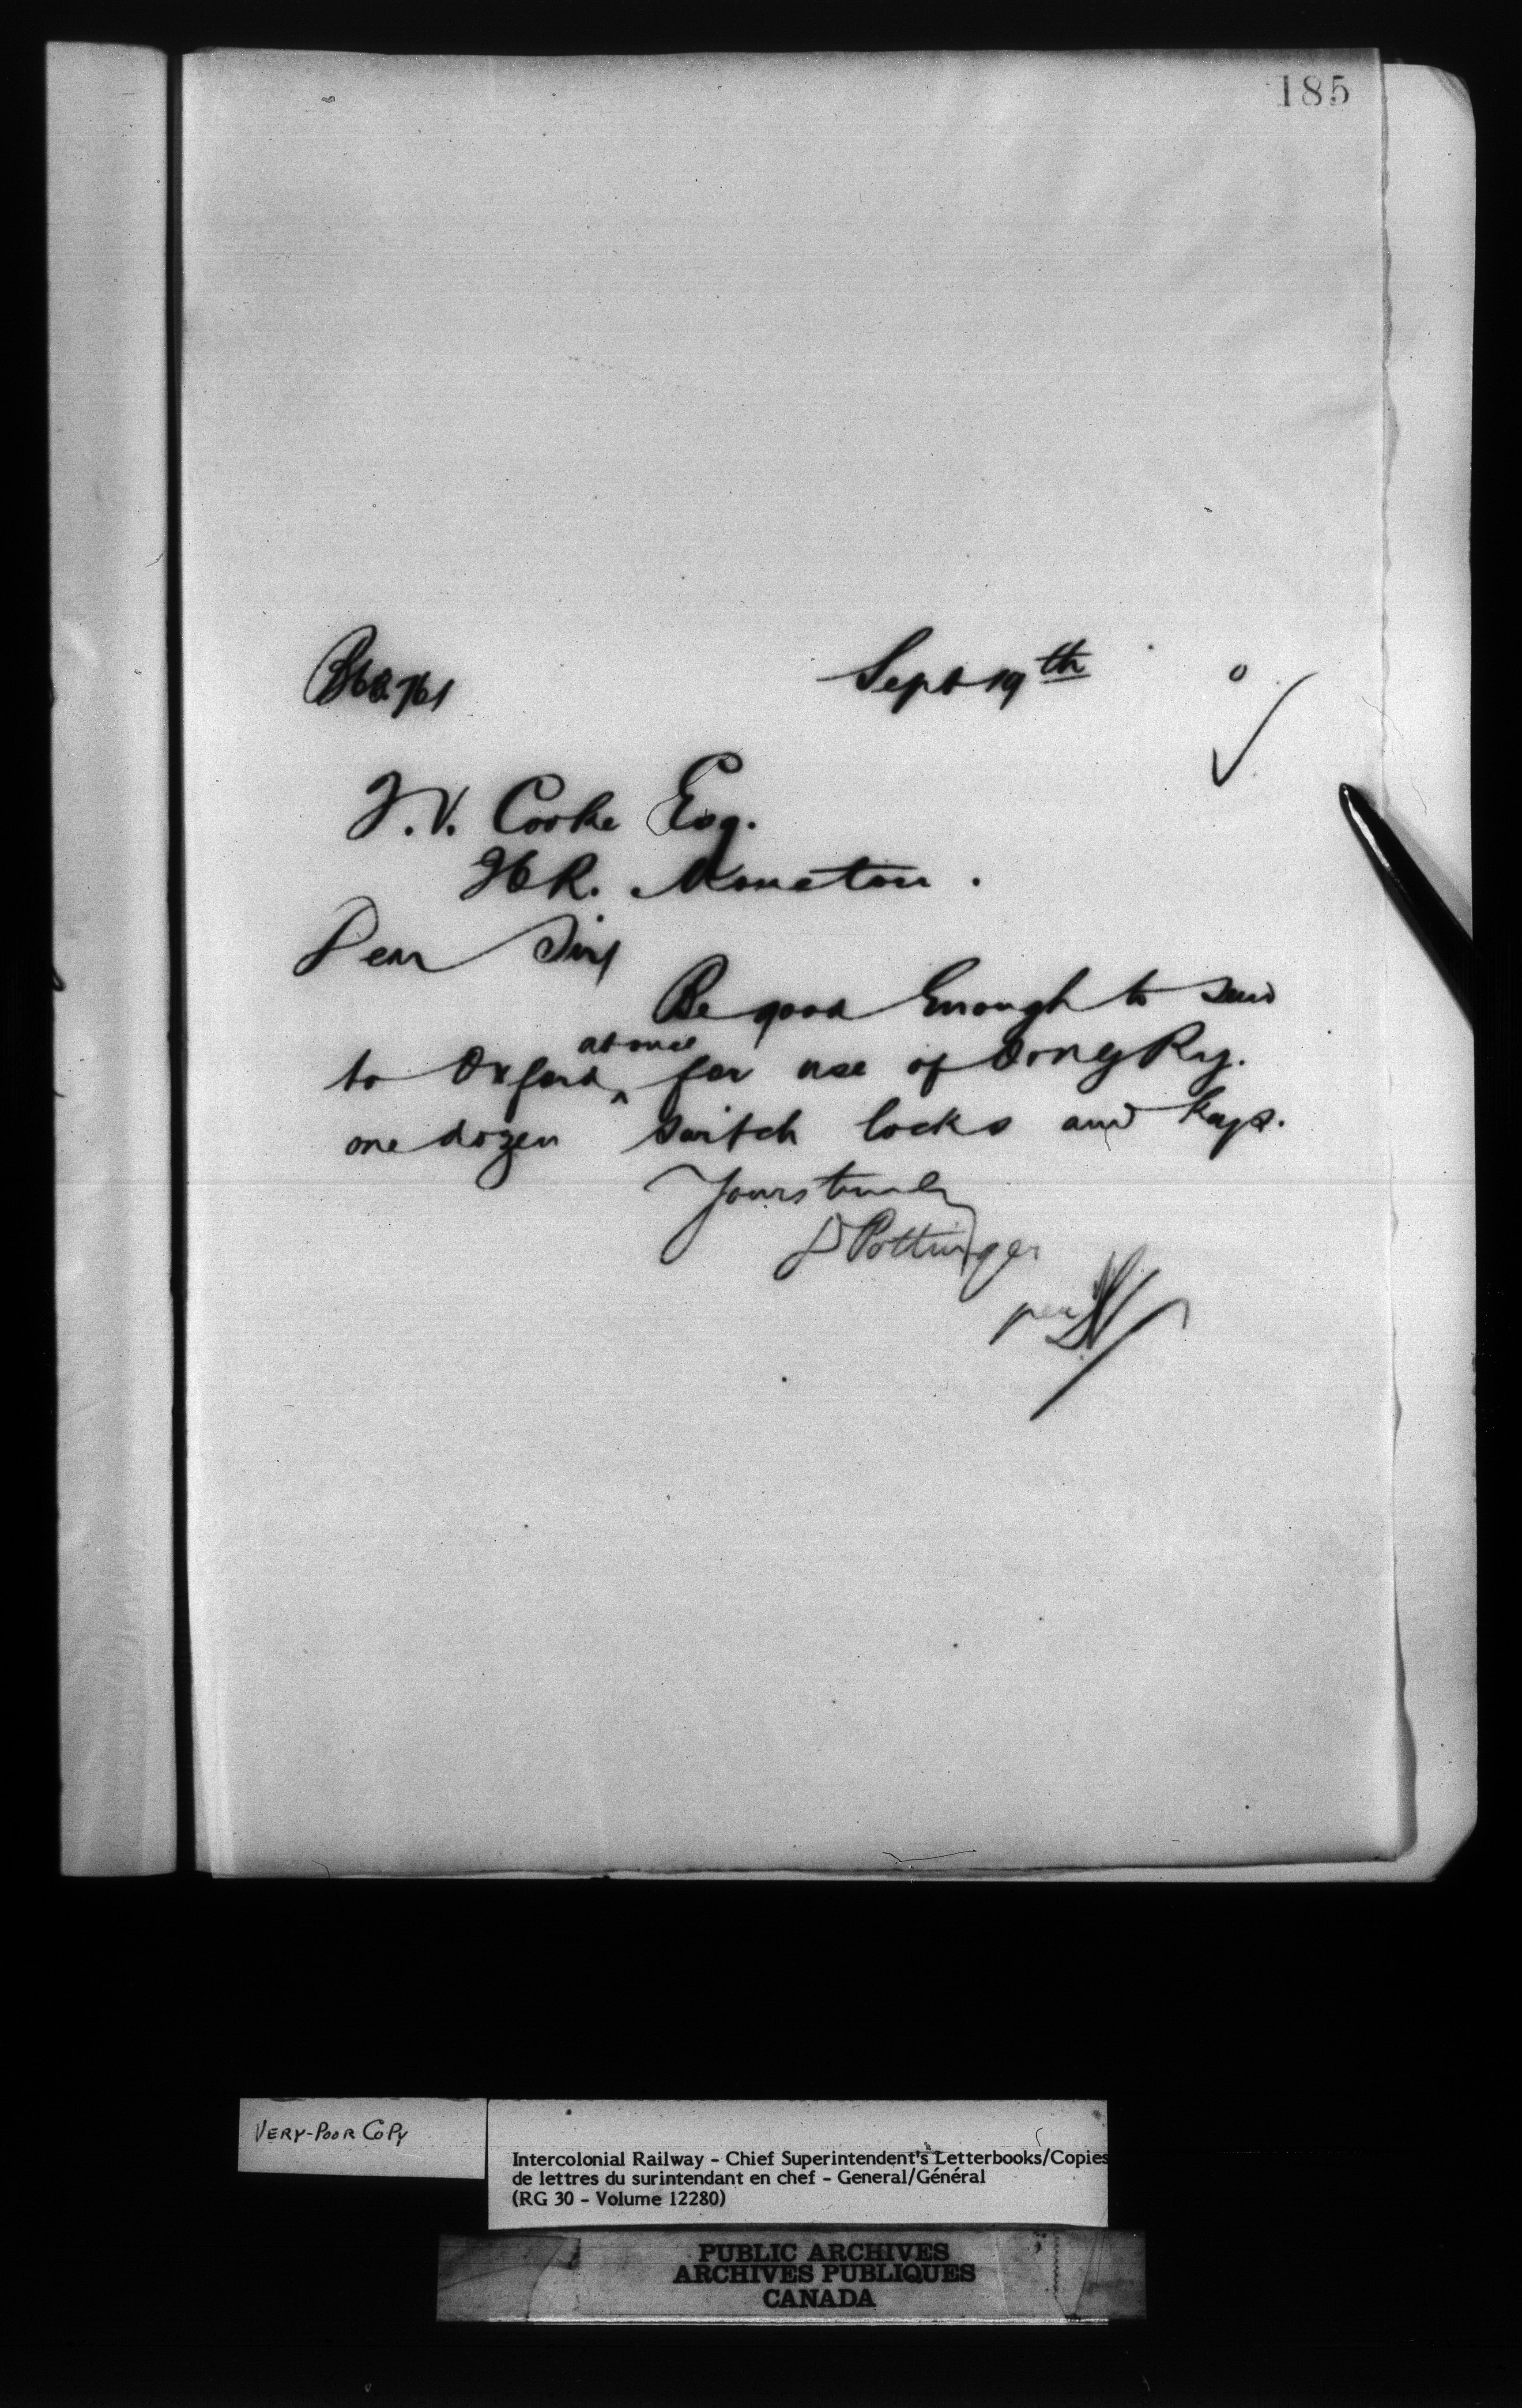 185
Sept 19th
T.V. Cooke Esq.
I C R. Moncton.
Dear Sir
Be good enough to send
at once
to Oxford ^ for use of O & N G Ry.
one dozen switch locks and keys.
Yours truly
D Pottinger
per
VERY-POOR COPY
Intercolonial Railway - Chief Superintendent's Letterbooks/Copies
de lettres du surintendant en chef - General/Général
(RG 30 - Volume 12280)
PUBLIC ARCHIVES
ARCHIVES PUBLIQUES
CANADA